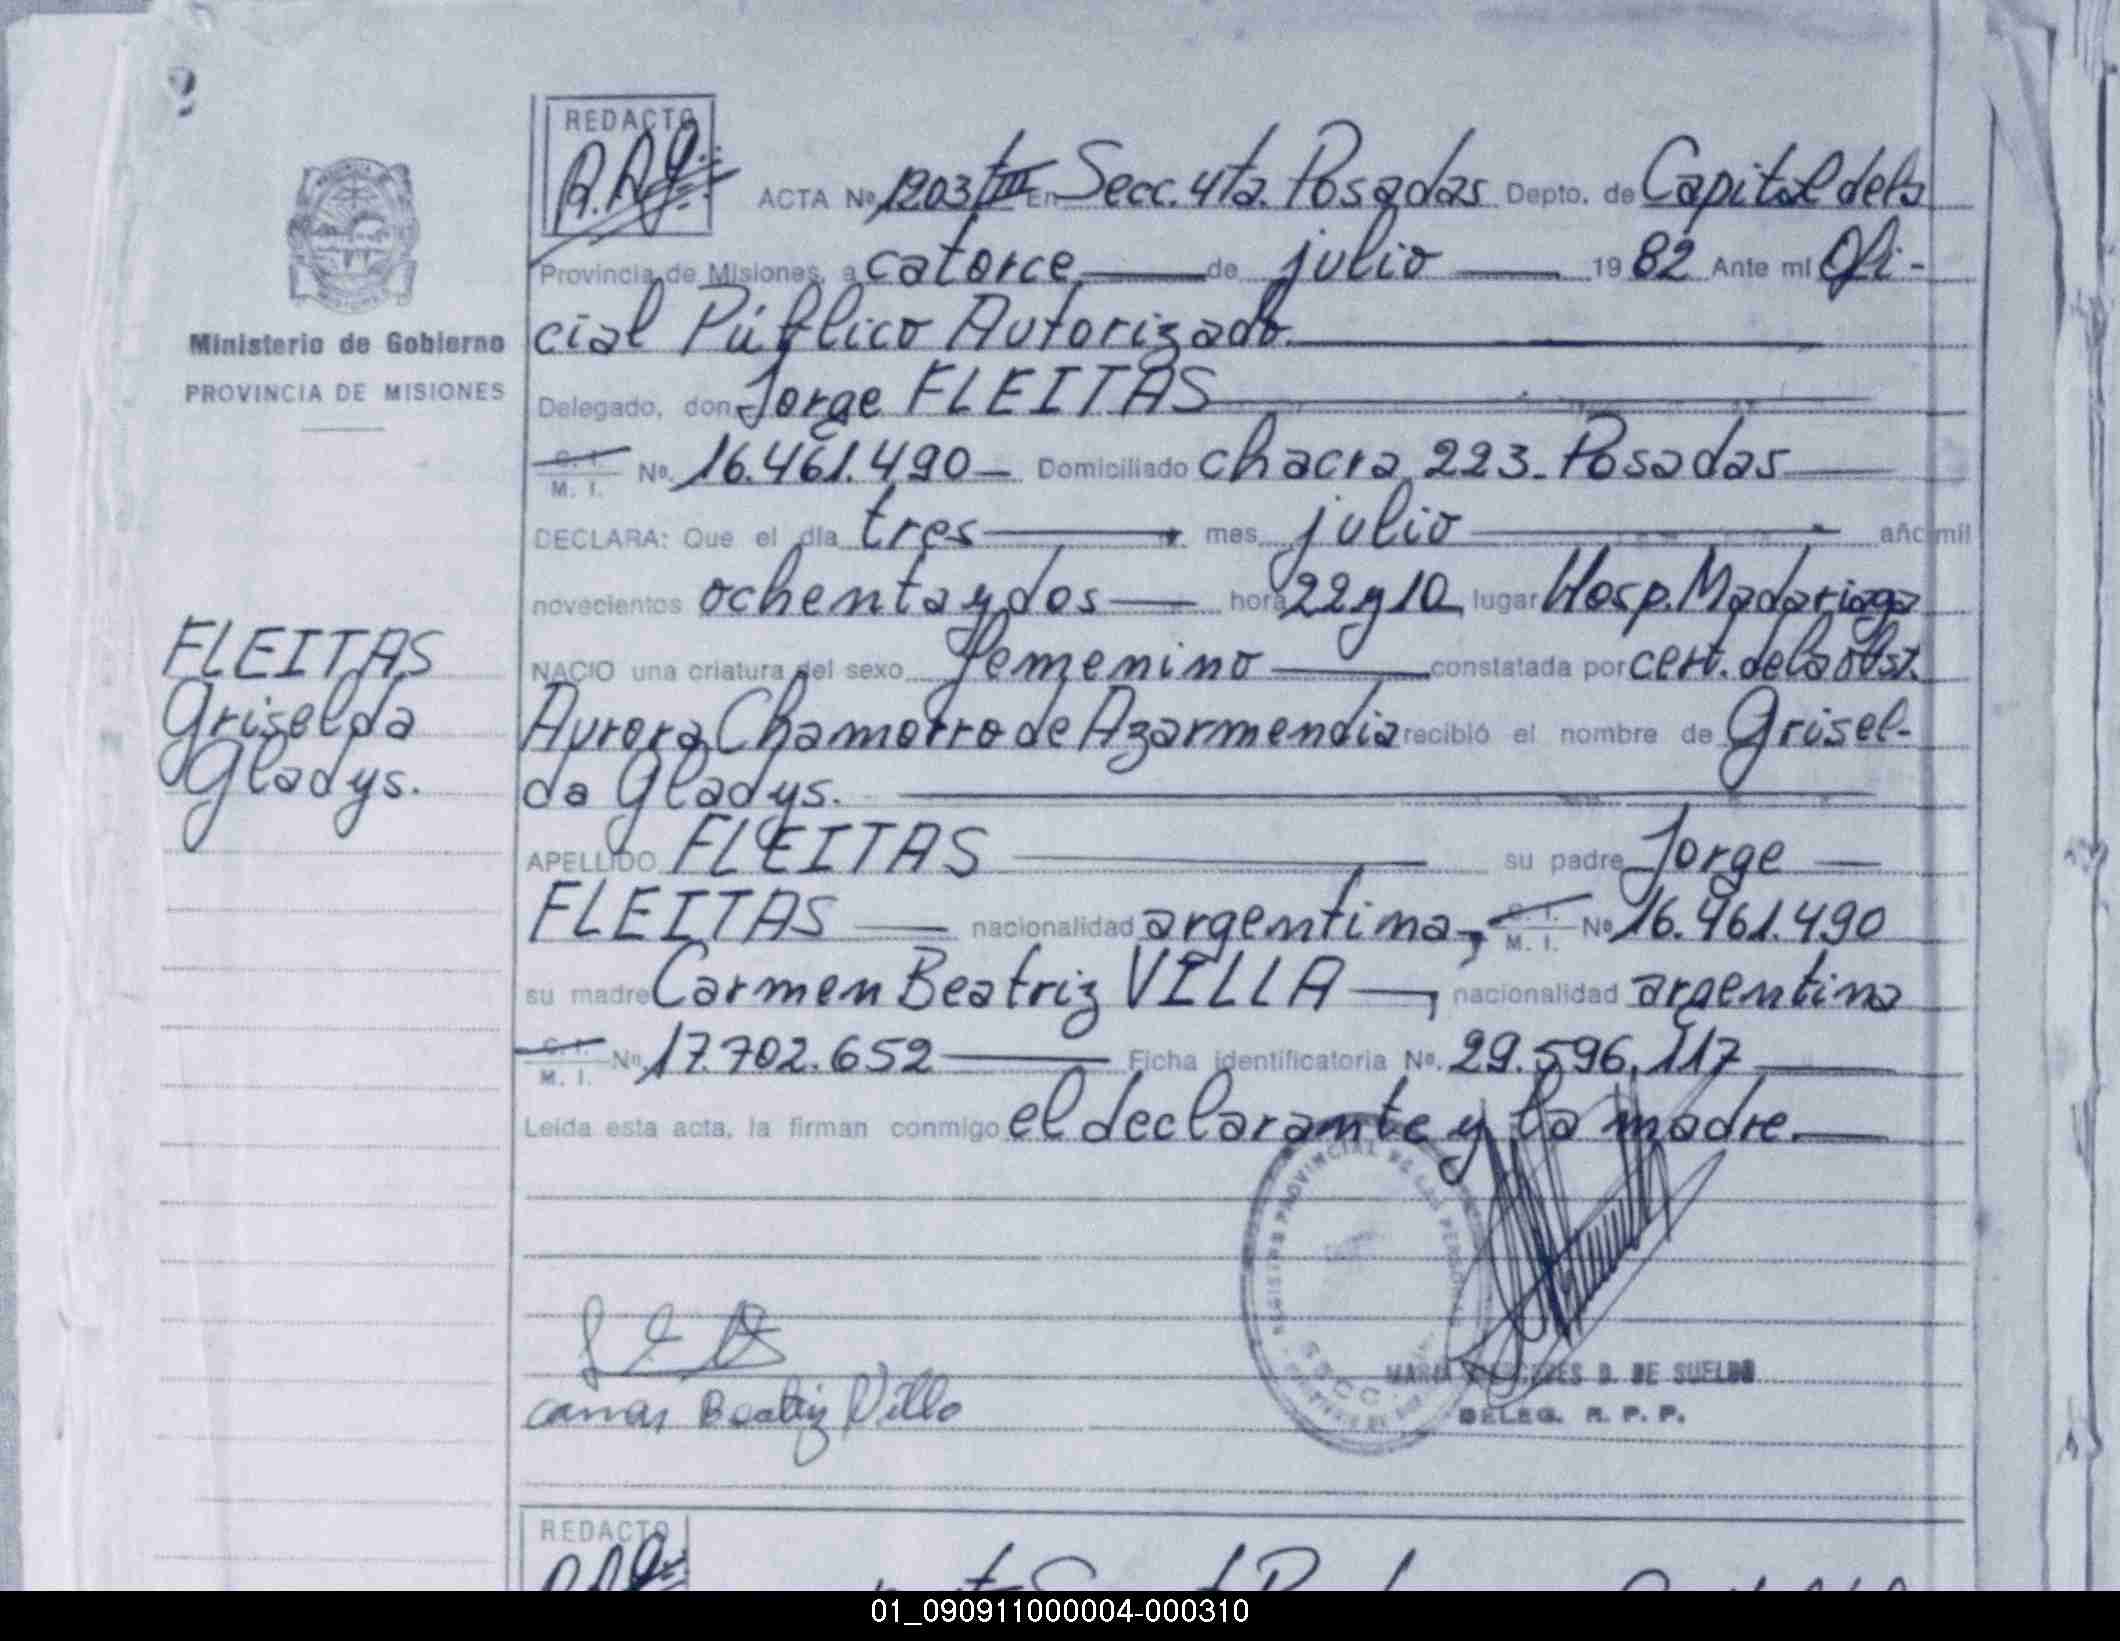 REDACTO
ACTA Nº 1203 tIII En Secc. 4ta. Posadas Depto. de Capital de la
Provincia de Misiones, a catorce de julio 1982 Ante mi Ofi-
cial Público Autorizado.
Ministerio de Gobierno
PROVINCIA DE MISIONES
Delegado, don Jorge FLEITAS
C. I. M. I. Nº 16.461.490 Domiciliado chacra 223. Posadas
DECLARA: Que el día tres mes julio año mil
novecientos ochenta y dos hora 22 y 10 lugar Hosp. Madariaga
NACIO una criatura del sexo femenino constatada por cert. de la obst.
Aurora Chamorro de Azarmendia recibió el nombre de Grisel-
da Gladys.
FLEITAS
Griselda
Gladys.
APELLIDO FLEITAS su padre Jorge
FLEITAS nacionalidad argentina, C. I. M. I. Nº 16.461.490
su madre Carmen Beatriz VILLA, nacionalidad argentina
C. I. M. I. Nº 17.702.652 Ficha identificatoria Nº. 29.596.117
Leída esta acta, la firman conmigo el declarante y la madre.
REGISTRO PROVINCIAL DE LAS PERSONAS
SECC.
Beatriz Villa
MARIA MERCEDES B. DE SUELDO
DELEG. R. P. P.
REDACTO
01_090911000004-000310